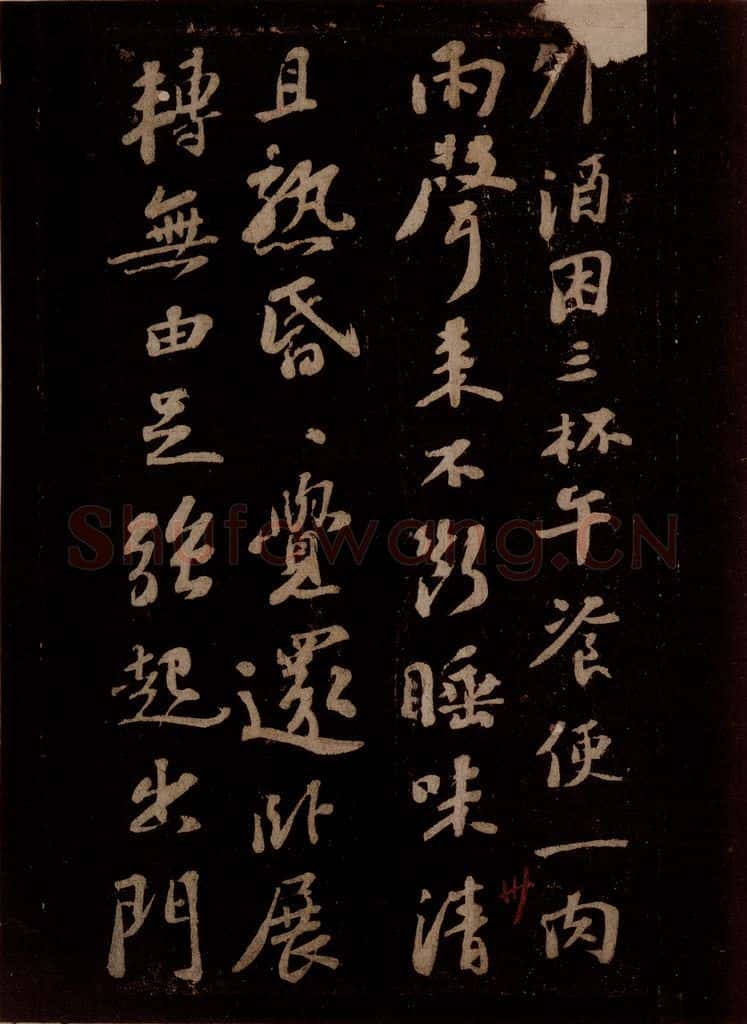 卯酒困三杯午飡便一肉
雨聲來不断睡味清
且熟昏、覺還臥展
轉無由足強起出門
Shufawang.CN